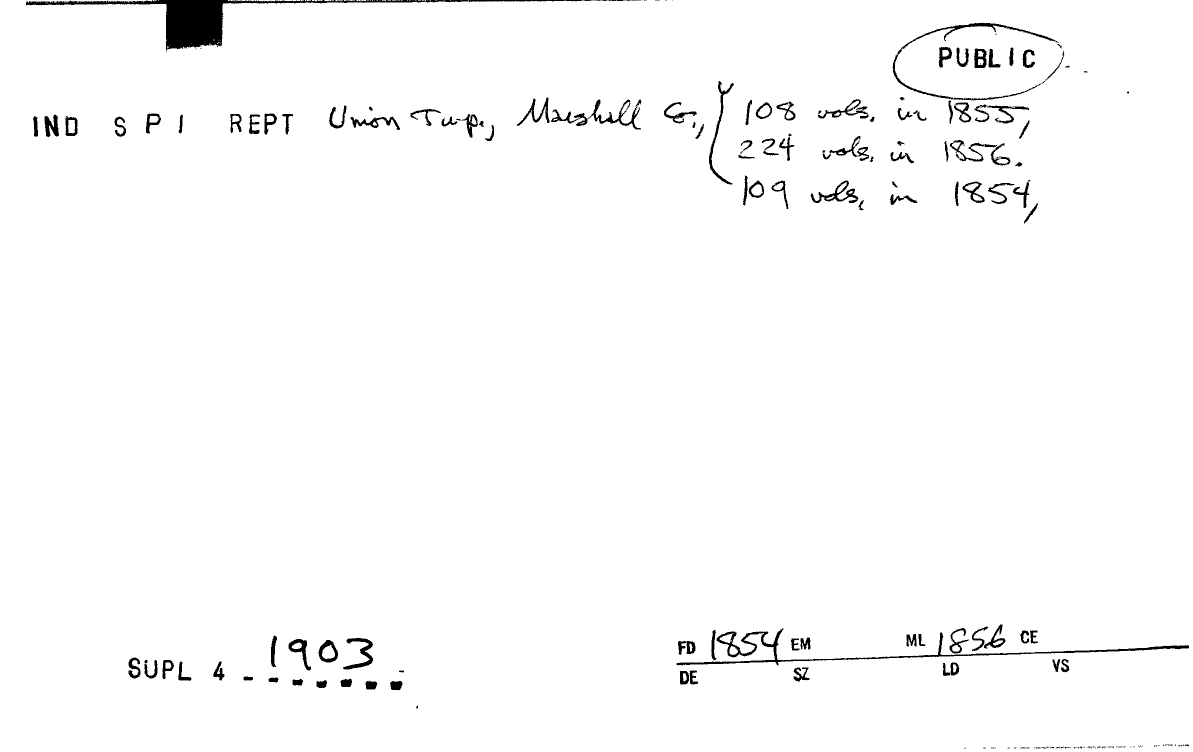 PUBLIC
IND S P I REPT Union Twp., Marshall Co., 108 vols. in 1855,
224 vols. in 1856.
109 vols. in 1854,
SUPL 4 1903
FD 1854 EM ML 1856 CE
DE SZ LD VS